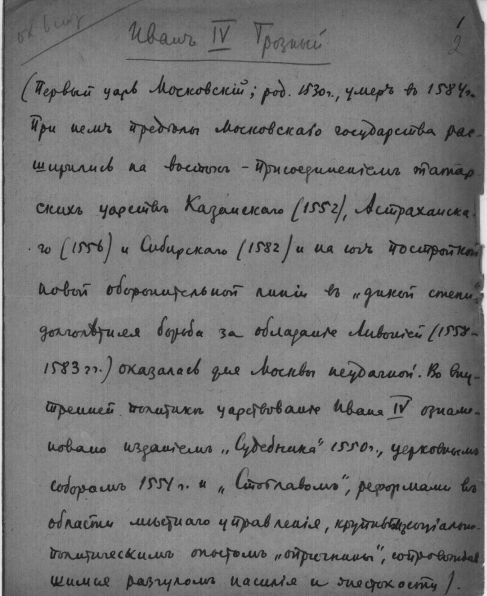 1
2
Иванъ IV Грозный
(Первый царь Московскій; род. 1530г., умеръ въ 1584г.
При немъ предѣлы Московскаго государства рас-
ширились на востокъ - присоединеніемъ татар-
скихъ царствъ Казанскаго (1552), Астраханска-
го (1556) и Сибирскаго (1582) и на югъ постройкой
новой оборонительной линіи въ „дикой степи“
долголѣтняя борьба за обладаніе Ливоніей (1558-
1583 гг.) оказалась для Москвы неудачной. Во вну-
тренней политикѣ царствованіе Ивана IV ознаме-
новано изданіемъ „Судебника“ 1550г., церковнымъ
соборомъ 1551 г. и „Стоглавомъ“, реформами въ
области мѣстнаго управленія, крупнымъ соціально-
политическимъ опытомъ „опричнины“, сопровождав
шимся разгуломъ насилія и жестокости).